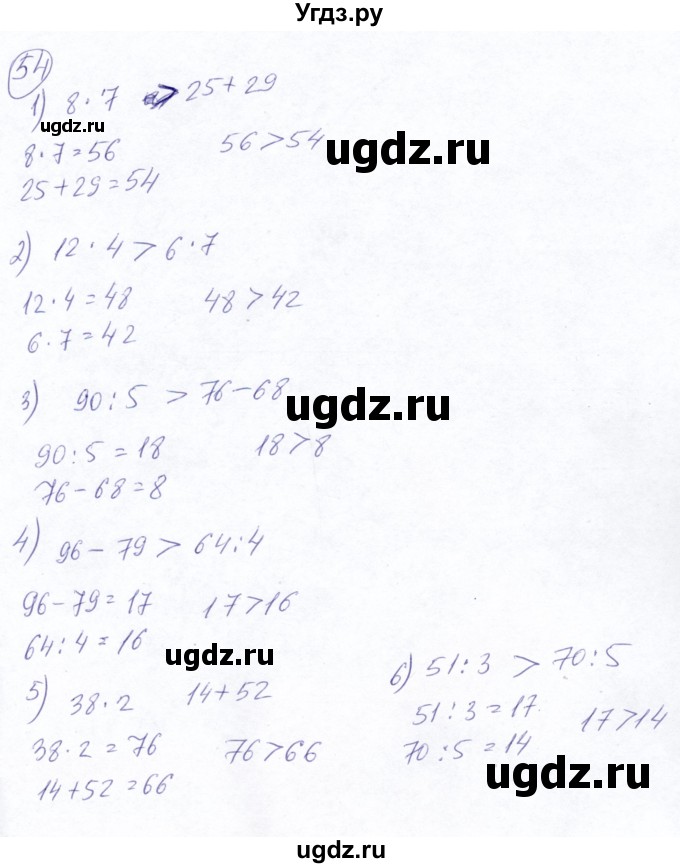 Угдз.ру
54
1) 8 · 7 > 25 + 29
ugdz.ru
8 · 7 = 56 56 > 54
ugdz.ru
25 + 29 = 54
2) 12 · 4 > 6 · 7
12 · 4 = 48 48 > 42
6 · 7 = 42
3) 90 : 5 > 76 − 68
ugdz.ru
90 : 5 = 18 18 > 8
76 − 68 = 8
4) 96 − 79 > 64 : 4
96 − 79 = 17 17 > 16
64 : 4 = 16
ugdz.ru
5) 38 · 2 14 + 52
38 · 2 = 76 76 > 66
14 + 52 = 66
6) 51 : 3 > 70 : 5
51 : 3 = 17 17 > 14
70 : 5 = 14
ugdz.ru
ugdz.ru